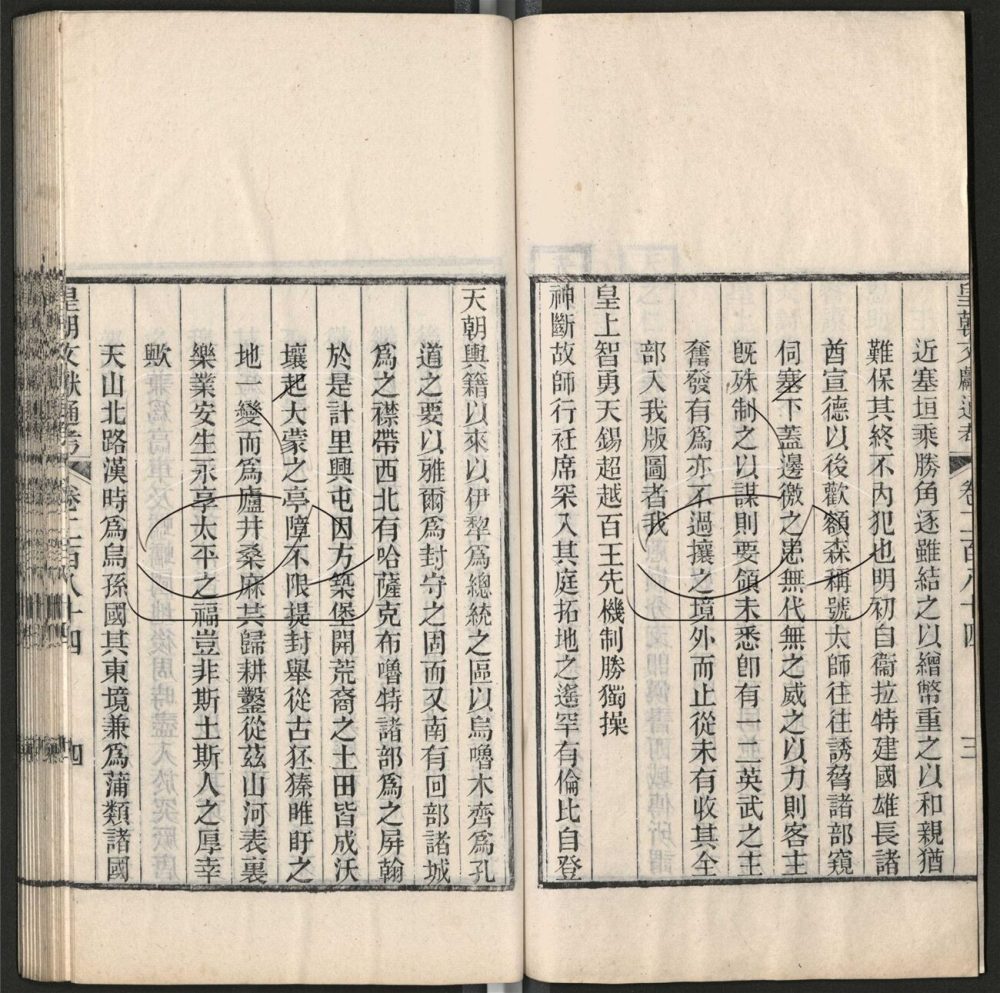 皇朝文獻通考 卷二百八十四 三
近塞垣乘勝角逐雖結之以繒幣重之以和親猶
難保其終不內犯也明初自衞拉特建國雄長諸
酋宣德以後歡額森稱號太師往往誘脅諸部窺
伺塞下蓋邊徼之患無代無之威之以力則客主
旣殊制之以謀則要領未悉卽有一二英武之主
奮發有爲亦不過攘之境外而止從未有收其全
部入我版圖者我
皇上智勇天錫超越百王先機制勝獨操
神斷故師行祍席罙入其庭拓地之遙罕有倫比自登
天朝輿籍以來以伊犂爲總統之區以烏嚕木齊爲孔
道之要以雅爾爲封守之固而又南有回部諸城
爲之襟帶西北有哈薩克布嚕特諸部爲之屏翰
於是計里興屯因方築堡開荒裔之土田皆成沃
壤起大蒙之亭障不限提封舉從古狉獉睢盱之
地一變而爲廬井桑麻其歸耕鑿從茲山河表裏
樂業安生永享太平之福豈非斯土斯人之厚幸
歟
天山北路漢時爲烏孫國其東境兼爲蒲類諸國
皇朝文獻通考 卷二百八十四 四